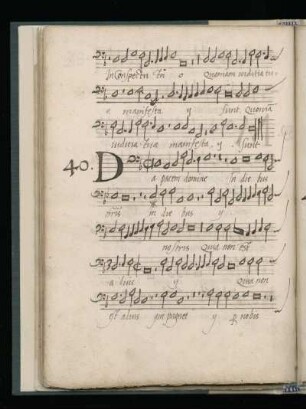 In conspectu tuo Quoniam iudicia tu
a manifesta y sunt Quoniā
iudicia tua manifesta y sunt
40. D
a pacem domine In die bus
nris in die bus y
nostris Quia non est
alius y Quia non
est alius qui pugnet y p nobis